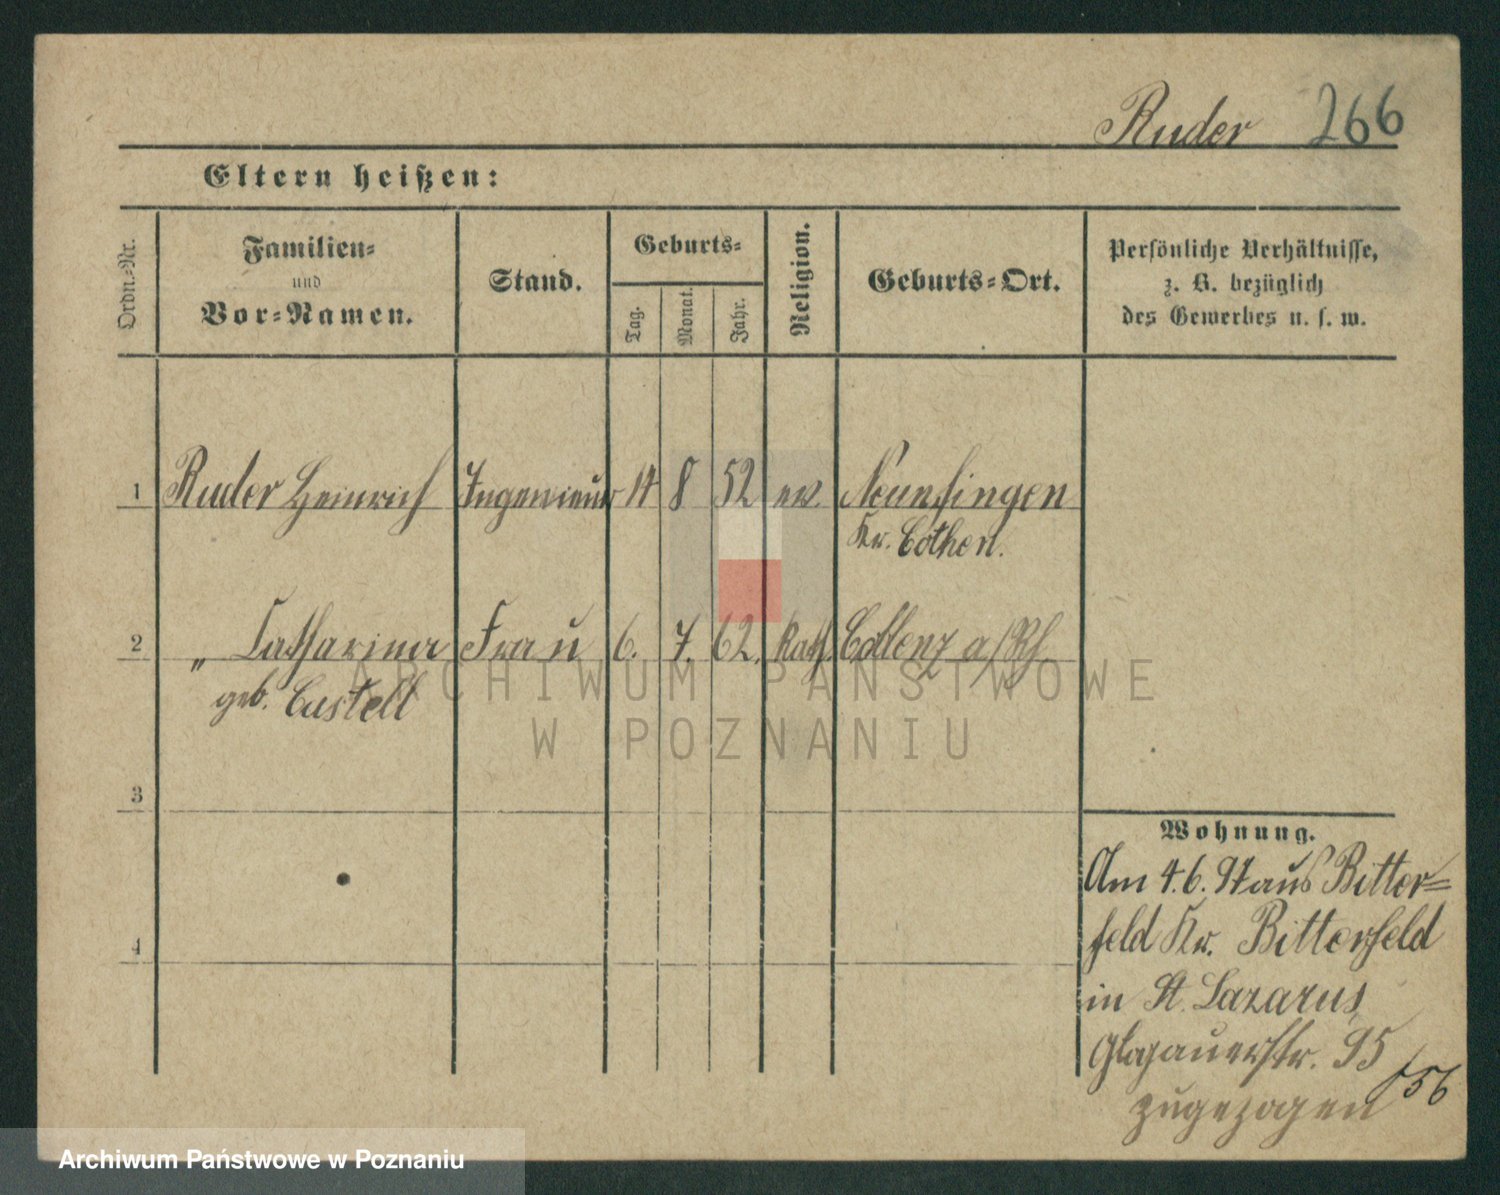 Ruder 266
Eltern heißen:
Ordn.-Nr.
Familien-
und
Vor-Namen.
Stand.
Geburts-
Tag.
Monat.
Jahr.
Religion.
Geburts-Ort.
Persönliche Verhältnisse,
z. B. bezüglich
des Gewerbes u. s. w.
1 Ruder Heinrich Ingenieur 14 8 52 ev.
Kr. Cöthen.
2 " Catharina Frau 6. 7. 62. Kath. Coblenz a/Rh
geb. Castell
ARCHIWUM PAŃSTWOWE
W POZNANIU
3
4
Wohnung.
Am 4.6. 97 aus Bitter=
feld Kr. Bitterfeld
in St. Lazarus,
Glogauerstr. 95
zugezogen 756
Archiwum Państwowe w Poznaniu